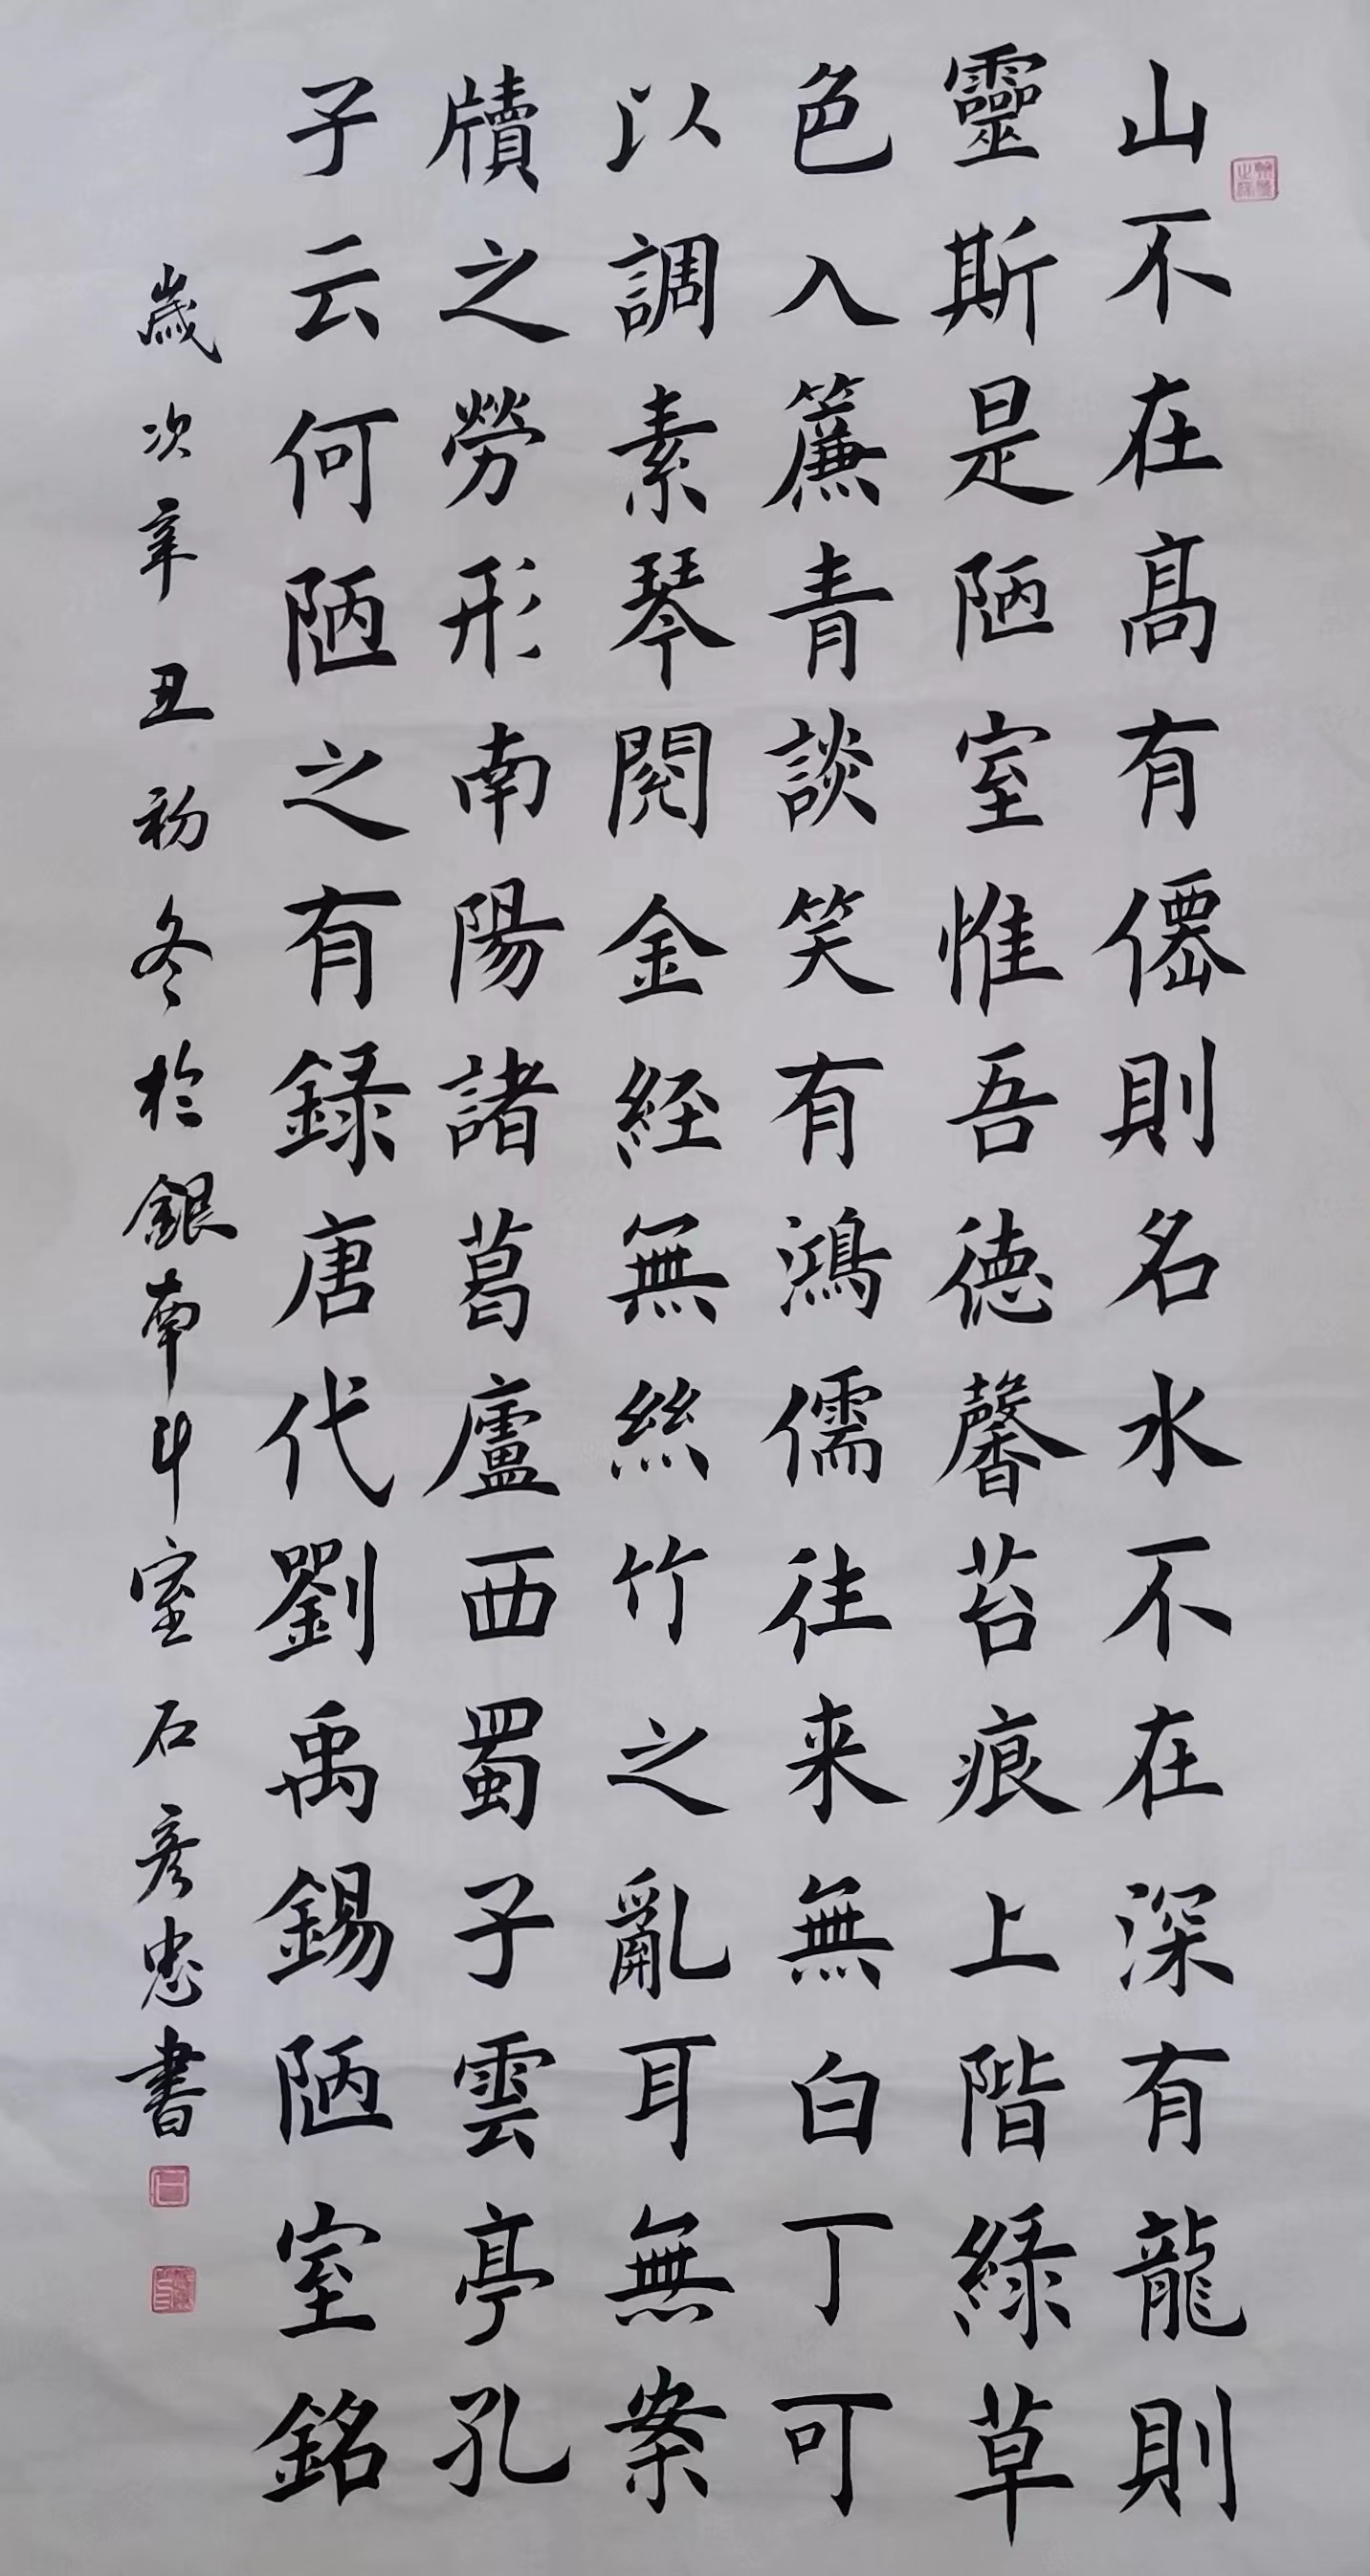 山不在高有僊則名水不在深有龍則
靈斯是陋室惟吾德馨苔痕上階綠草
色入簾青談笑有鴻儒往来無白丁可
以調素琴閱金經無絲竹之亂耳無案
牘之勞形南陽諸葛廬西蜀子雲亭孔
子云何陋之有録唐代劉禹錫陋室銘
歲次辛丑初冬於銀南斗室石彦忠書